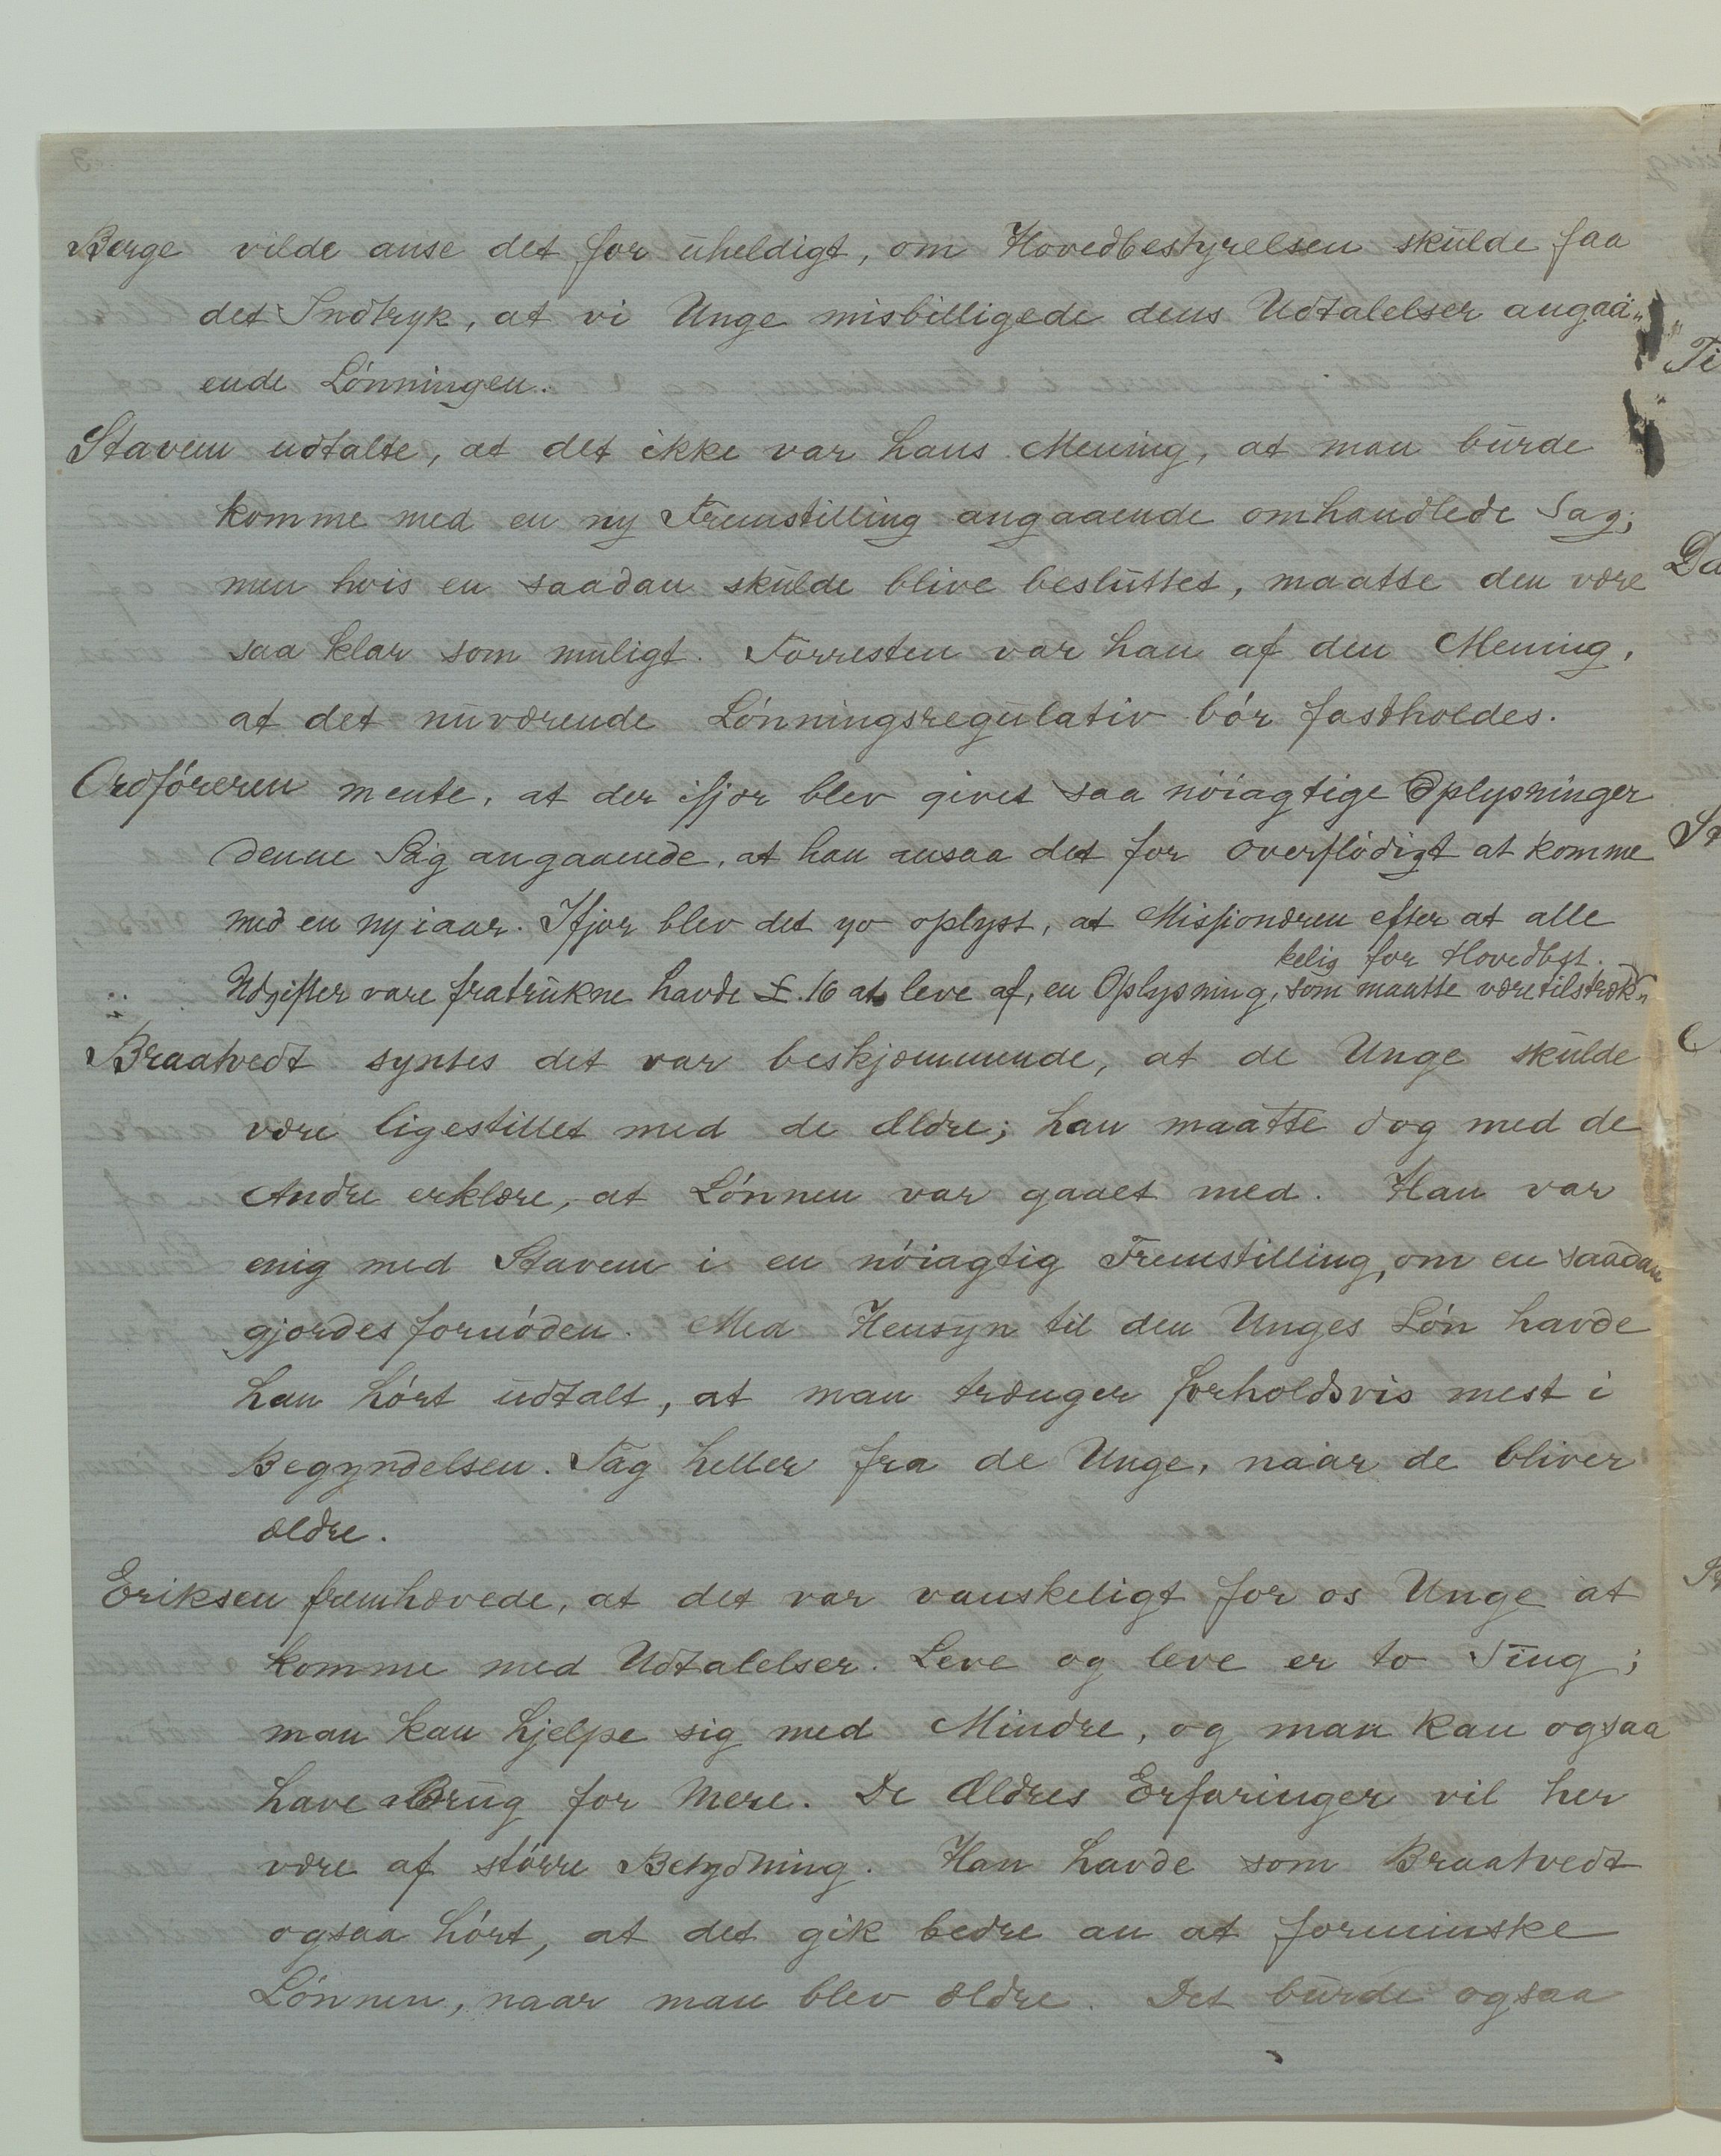 Berge vilde anse det for uheldigt, om Hovedbestyrelsen skulde faa
det Indtryk, at vi Unge misbilligede dens Udtalelser angaa„
ende Lónningen.
Stavem udtalte, at det ikke var hans Mening, at man burde
komme med en ny Fremstilling angaaende omhandlede Sag;
men hvis en saadan skulde blive besluttet, maatte den være
saa klar som muligt. Forresten var han af den Mening,
at det nuværende Lónningsregulativ bór fastholdes.
Ordfóreren mente, at der ifjor blev givet saa nóiagtige Oplysninger
denne Sag angaaende, at han ansaa det for overflódigt at komme
med en ny iaar. Ifjor blev det jo oplyst, at Missionæren efter at alle
kelig for Hovedbst.
Udgifter vare fratrukne havde £. 16 at leve af, en Oplysning, som maatte være tilstræk„
Braatvedt syntes det var beskjæmmende, at de Unge skulde
være ligestillet med de Ældre; han maatte dog med de
Andre erklære, at Lónnen var gaaet med. Han var
enig med Stavem i en nóiagtig Fremstilling, om en saadan
gjordes fornóden. Med Hensyn til den Unges Lón havde
han hórt udtalt, at man trænger forholdsvis mest i
Begyndelsen. Tag heller fra de Unge, naar de bliver
ældre.
Eriksen fremhævede, at det var vanskeligt for os Unge at
komme med Udtalelser. Leve og leve er to Ting;
man kan hjelpe sig med Mindre, og man kan ogsaa
have Brug for Mere. De Ældres Erfaringer vil her
være af stórre Betydning. Han havde som Braatvedt
ogsaa hórt, at det gik bedre an at forminske
Lónnen, naar man blev ældre. Det burde ogsaa